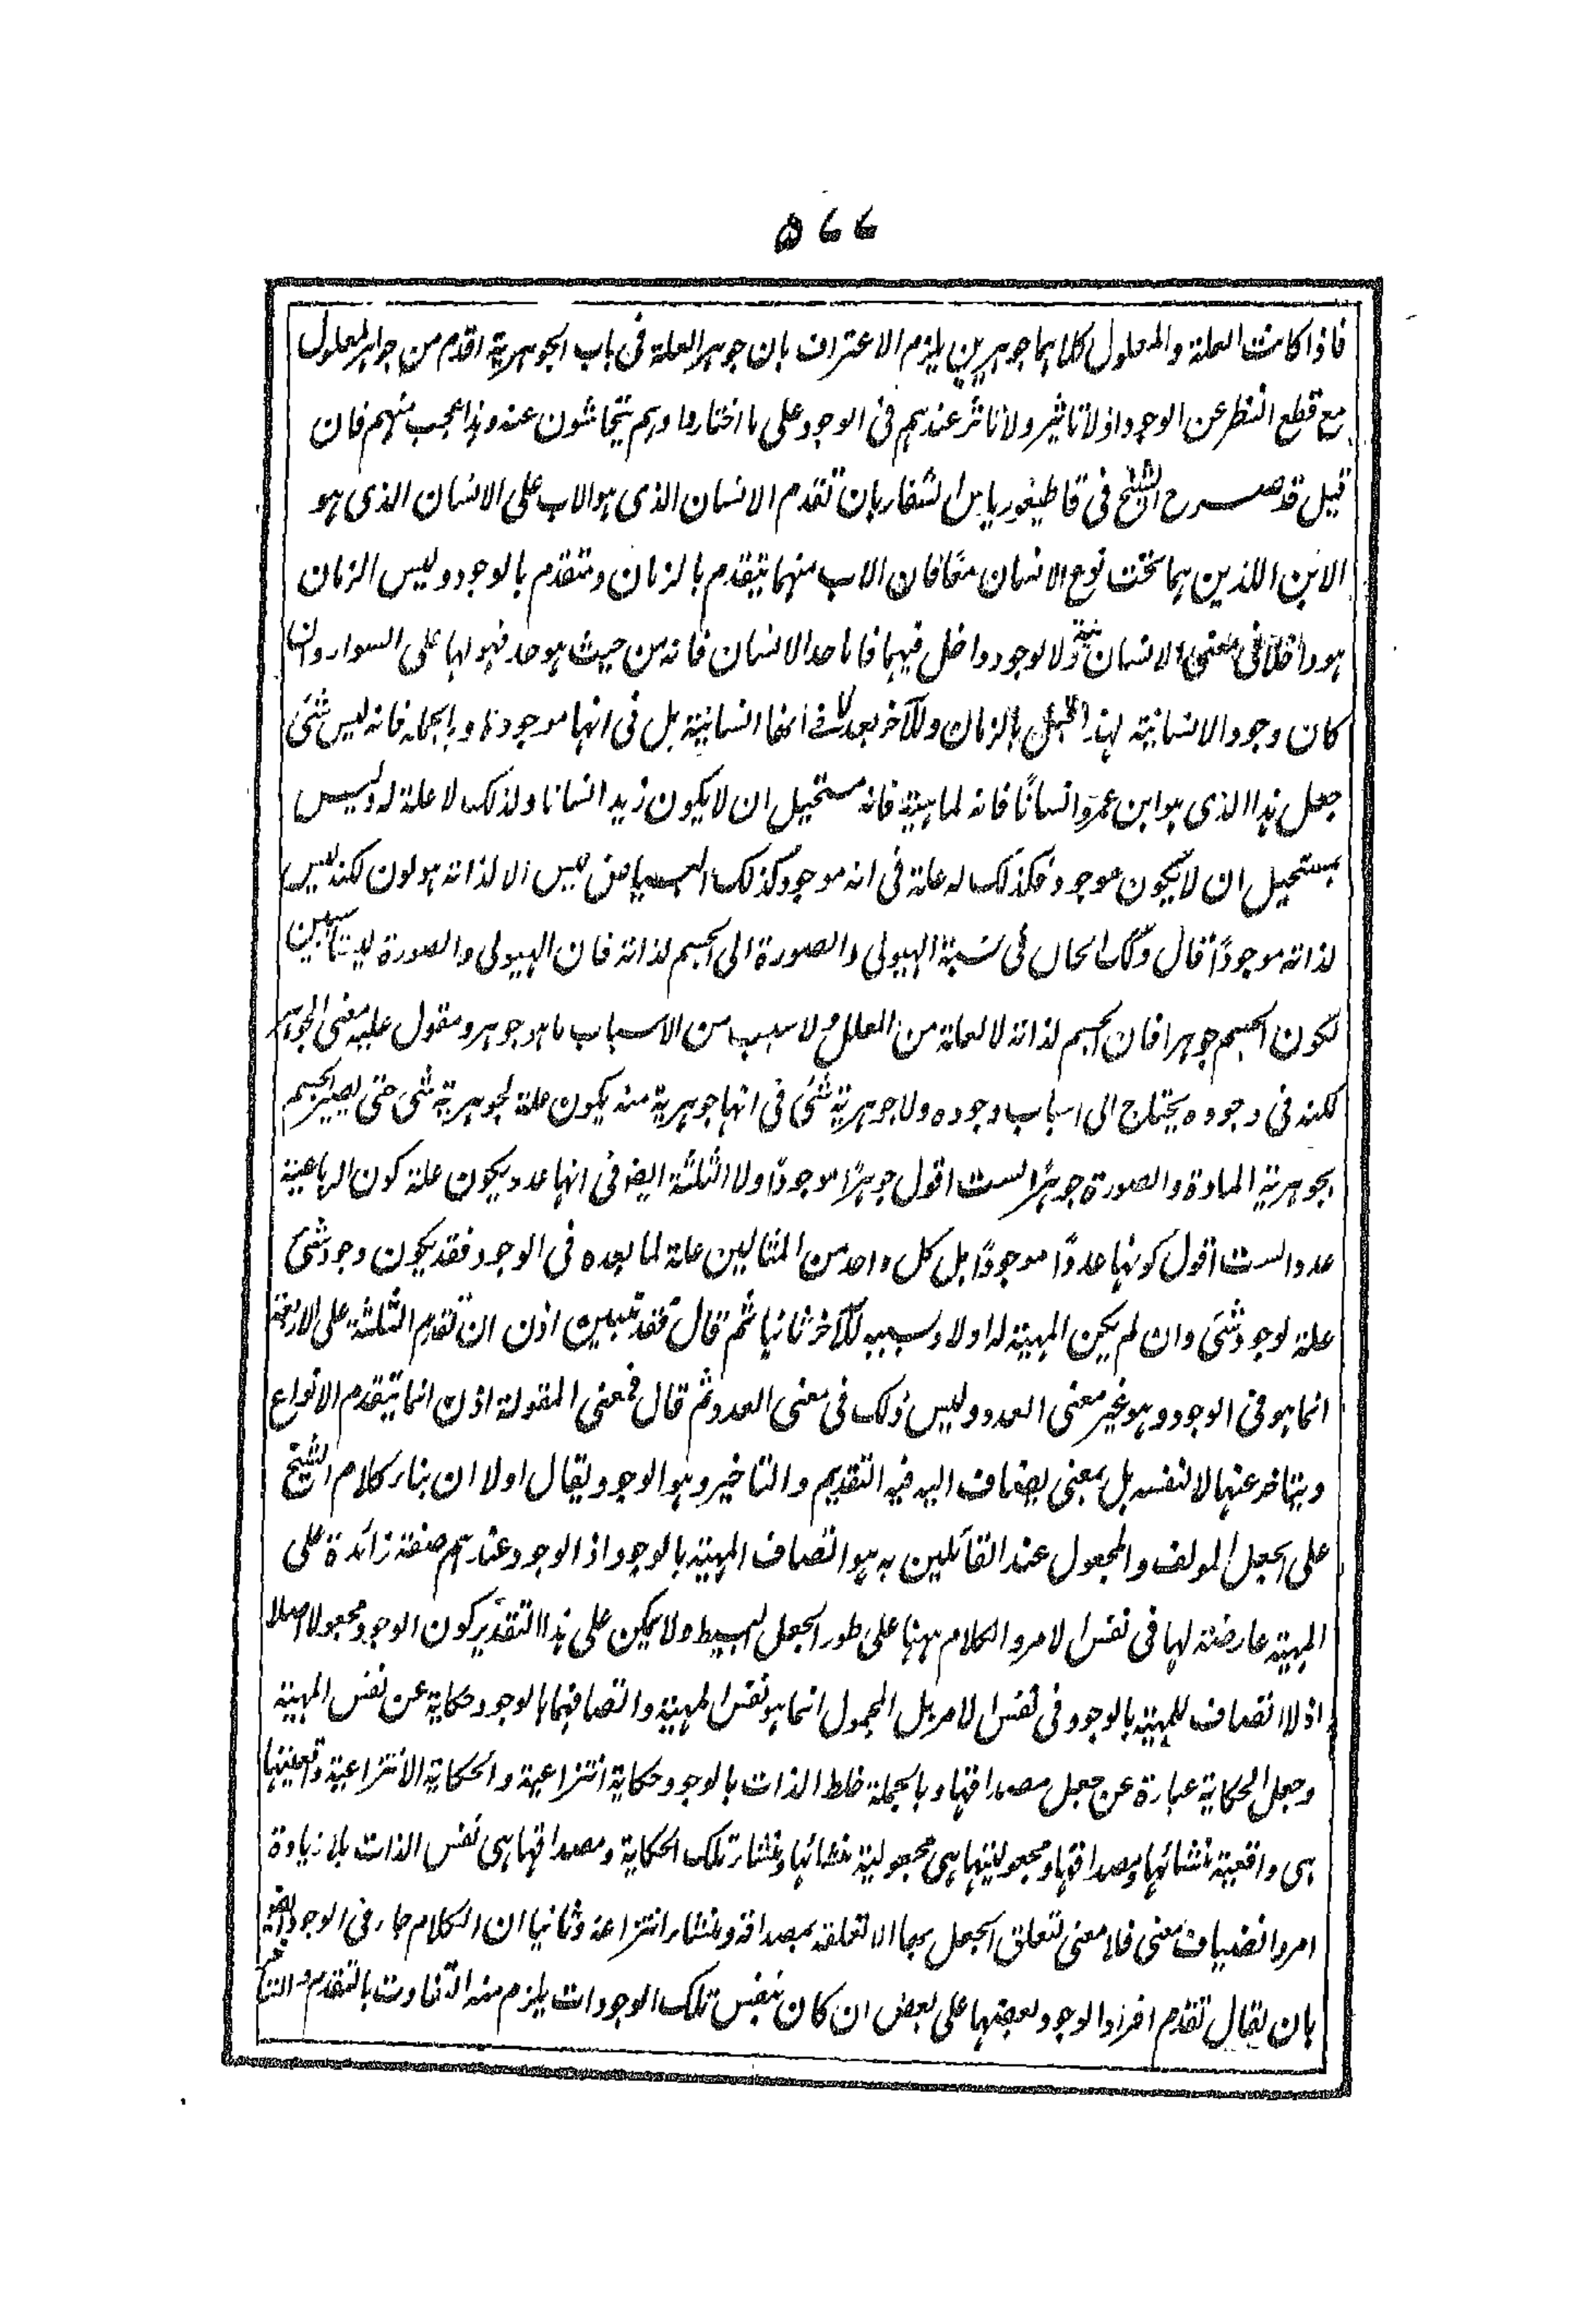 ۵۶۶
فاذا كانت العلة والمعلول كلاهما جوهرين يلزم الاعتراف بان جوهر العلة فى باب الجوهرية اقدم من جواهر المعلول
مع قطع النظر عن الوجود اذ لا تاثير ولا تاثر عندهم فى الوجود على ما اختاروا وهم يتحاشون عنه وهذا عجب منهم فان
قيل قد صرح الشيخ فى قاطيغورياس الشفاء بان تقدم الانسان الذى هو الاب على الانسان الذى هو
الابن اللذين هما تحت نوع الانسان معًا فان الاب منهما يتقدم بالزمان ومتقدم بالوجود وليس الزمان
هو داخلا فى معنى الانسانية ولا لوجود داخل فيهما فاما حد الانسان فانه من حيث هو حد فهو لها على السواء وان
كان وجود الانسانية لهذا قبل بالزمان وللآخر بعد لا فى انها انسانية بل فى انها موجودة وبالجملة فانه ليس شئ
جعل هذا الذى هو ابن عمرو انسانًا فانه لماهيته فانه مستحيل ان لا يكون زيد انسانا ولذلك لا علة له وليس
بمستحيل ان لا يكون موجود فكذلك له علة فى انه موجود كذلك البياض ليس الا لذاته هو لون لكنه ليس
لذاته موجودًا قال وكك الحال فى نسبة الهيولى والصورة الى الجسم لذاته فان الهيولى والصورة ليستا سببين
لكون الجسم جوهرا فان الجسم لذاته لا لعلة من العلل ولا سبب من الاسباب ما هو جوهر ومقول عليه معنى الجوهر
لكنه فى وجوده يحتاج الى اسباب وجوده ولا جوهرية شئ فى انها جوهرية منه يكون علة لجوهرية شى حتى يصير الجسم
بجوهرية المادة والصورة جوهرًا لست اقول جوهرًا موجودًا ولا الثلثة ايضا فى انها عدد يكون علة كون الرباعية
عددا لست اقول كونها عددًا موجودًا بل كل واحد من المثالين علة لما بعده فى الوجود فقد يكون وجود شئ
علة لوجود شئ وان لم يكن المهية له اولا وبسببه للآخر ثانيا ثم قال فقد تبين اذن ان تقدم الثلثة على الاربعة
انما هو فى الوجود وهو غير معنى العدد وليس ذلك فى معنى العدد ثم قال فمعنى المقولة اذن انما يتقدم الانواع
ويتاخر عنها لا لنفسه بل بمعنى يضاف اليه فيه التقديم والتاخير وهو الوجود يقال اولا ان بناء كلام الشيخ
على الجعل المولف والمجعول عند القائلين به هو اتصاف المهية بالوجود اذ الوجود عندهم صفة زائدة على
المهية عارضة لها فى نفس الامر والكلام ههنا على طور الجعل البسيط ولا يمكن على هذا التقدير كون الوجود مجعولا اصلا
اذ لا اتصاف للمهية بالوجود فى نفس الامر بل المجعول انما هو نفس المهية واتصافها بالوجود حكاية عن نفس المهية
وجعل الحكاية عبارة عن جعل مصداقها وبالجملة خلط الذات بالوجود حكاية انتزاعية والحكاية الانتزاعية واقعيتها
هى واقعية منشائها ومصداقها ومجعوليتها هى مجعولية منشائها ومنشاء تلك الحكاية ومصداقها هى نفس الذات بلا زيادة
امر وانضياف معنى فلا معنى لتعلق الجعل بها الا تعلقه بمصداقه ومنشاء انتزاعه وثانيا ان الكلام جار فى الوجود ايضا
بان يقال تقدم افراد الوجود بعضها على بعض ان كان بنفس تلك الوجودات يلزم منه التفاوت بالتقدم والتاخر